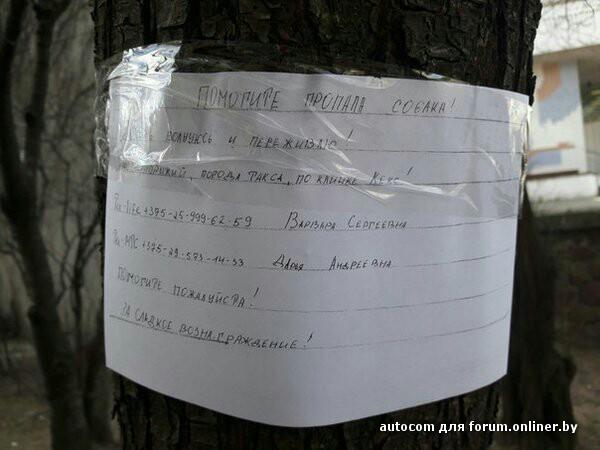 ПОМОГИТЕ ПРОПАЛА СОБАКА!
ВОЛНУЮСЬ И ПЕРЕЖИВАЮ!
РЫЖИЙ, ПОРОДА ТАКСА, ПО КЛИЧКЕ КЕКС!
+375-25-999-62-59 ВАРВАРА СЕРГЕЕВНА
МТС +375-29-573-14-33 ДАРЬЯ АНДРЕЕВНА
ПОМОГИТЕ ПОЖАЛУЙСТА!
ЗА СЛАДКОЕ ВОЗНАГРАЖДЕНИЕ!
autocom для forum.onliner.by